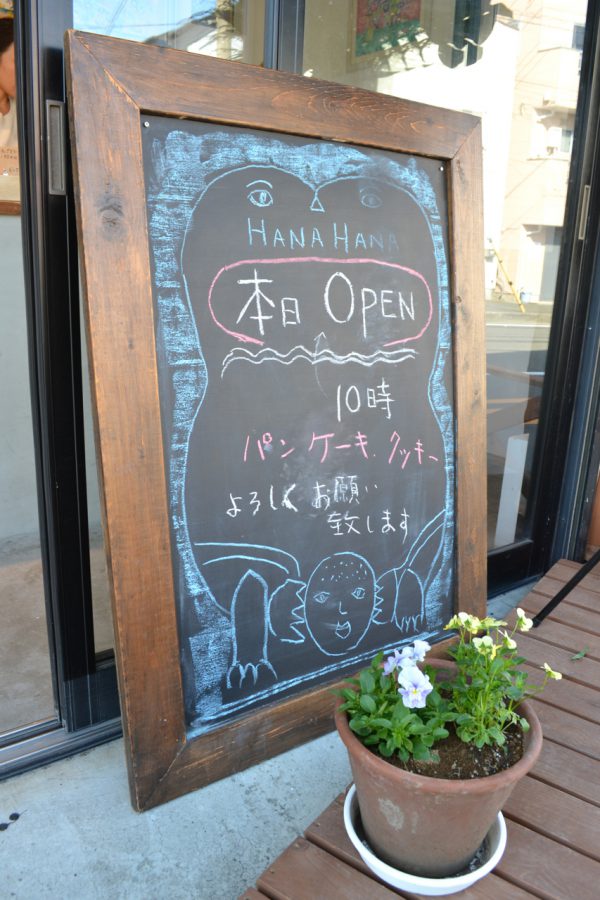 HANA HANA
本日 OPEN
10時
パン ケーキ. クッキー
よろしく お願い
致します